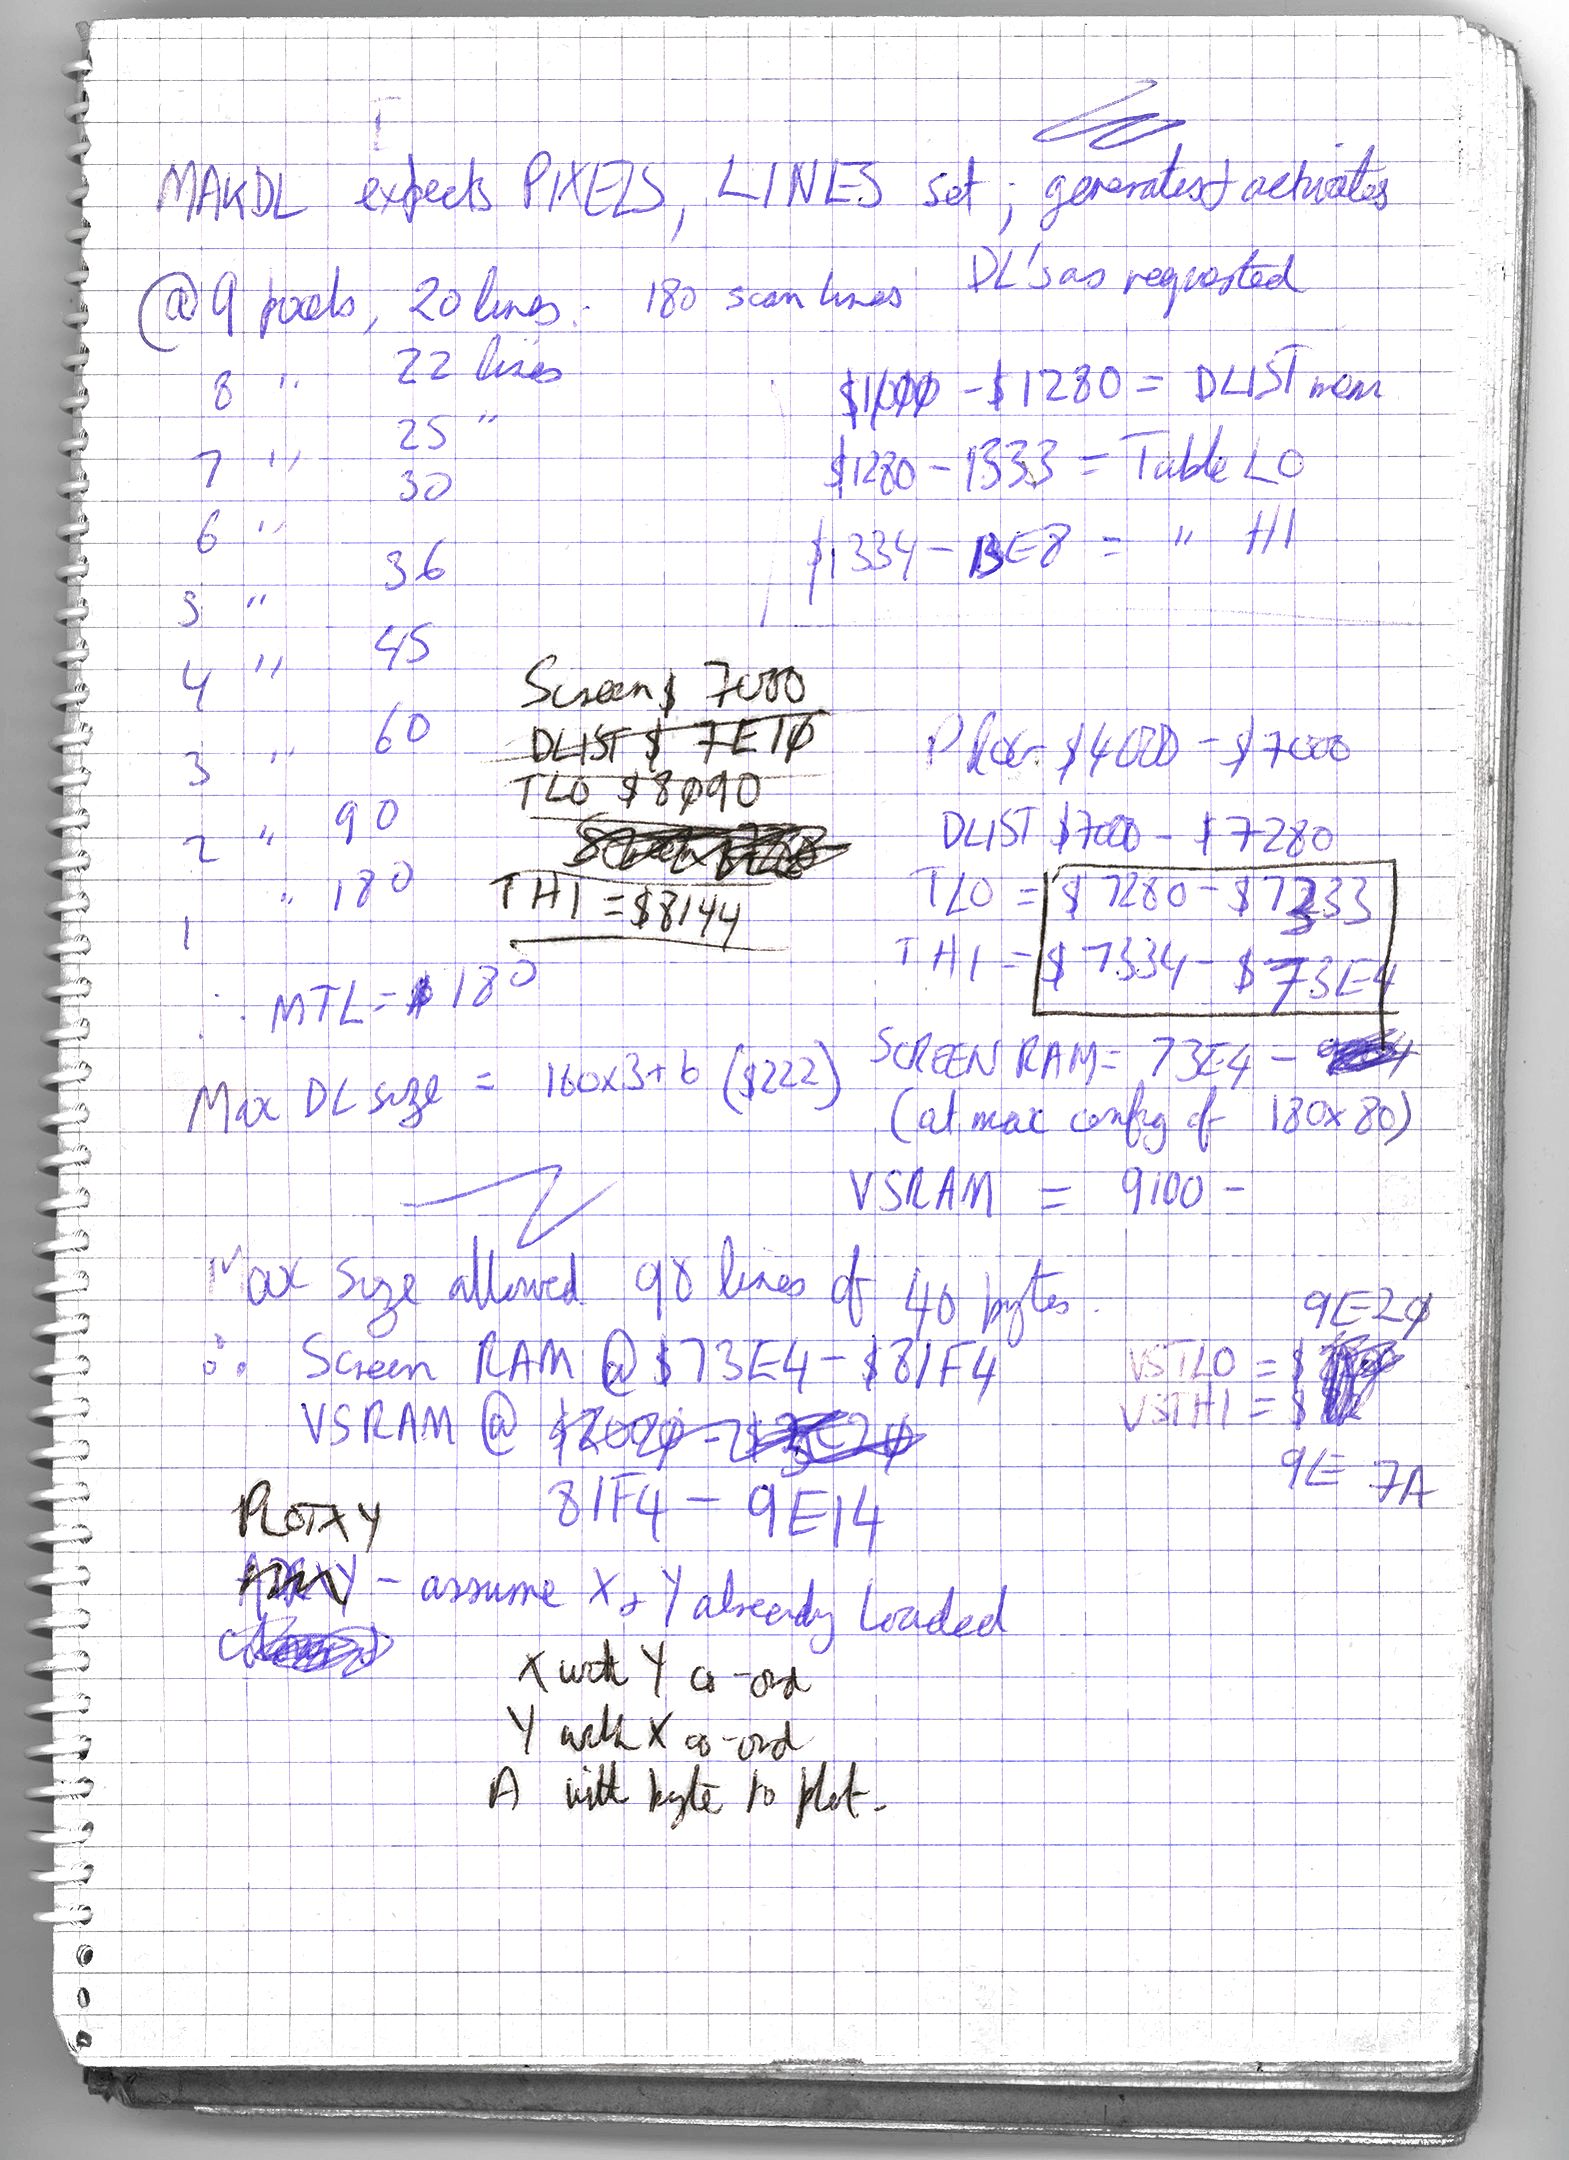 MAKDL expects PIXELS, LINES set; generates + activates
DL's as requested
@ 9 pixels, 20 lines. 180 scan lines
8 " 22 lines
7 " 25 "
6 " 30
5 " 36
4 " 45
3 " 60
2 " 90
1 " 180
$1000 - $1280 = DLIST mem
$1280 - 1333 = Table LO
$1334 - 13E8 = " HI
Screen $ 7000
DLIST $ 7E10
TLO $8090
THI = $8144
$4000 - $7000
DLIST $7000 - $7280
TLO = $7280 - $7333
THI = $7334 - $73E4
∴ MTL = 180
Max DL size = 160x3+6 ($222)
SCREEN RAM = 73E4 -
(at max config of 180x80)
VSRAM = 9100 -
Max size allowed 90 lines of 40 bytes.
∴ Screen RAM @ $73E4 - $81F4
VSRAM @
81F4 - 9E14
9E20
VSTLO = $
VSTHI = $
9E 7A
PLOTXY
- assume X & Y already loaded
X with Y co-ord
Y with X co-ord
A with byte to plot.